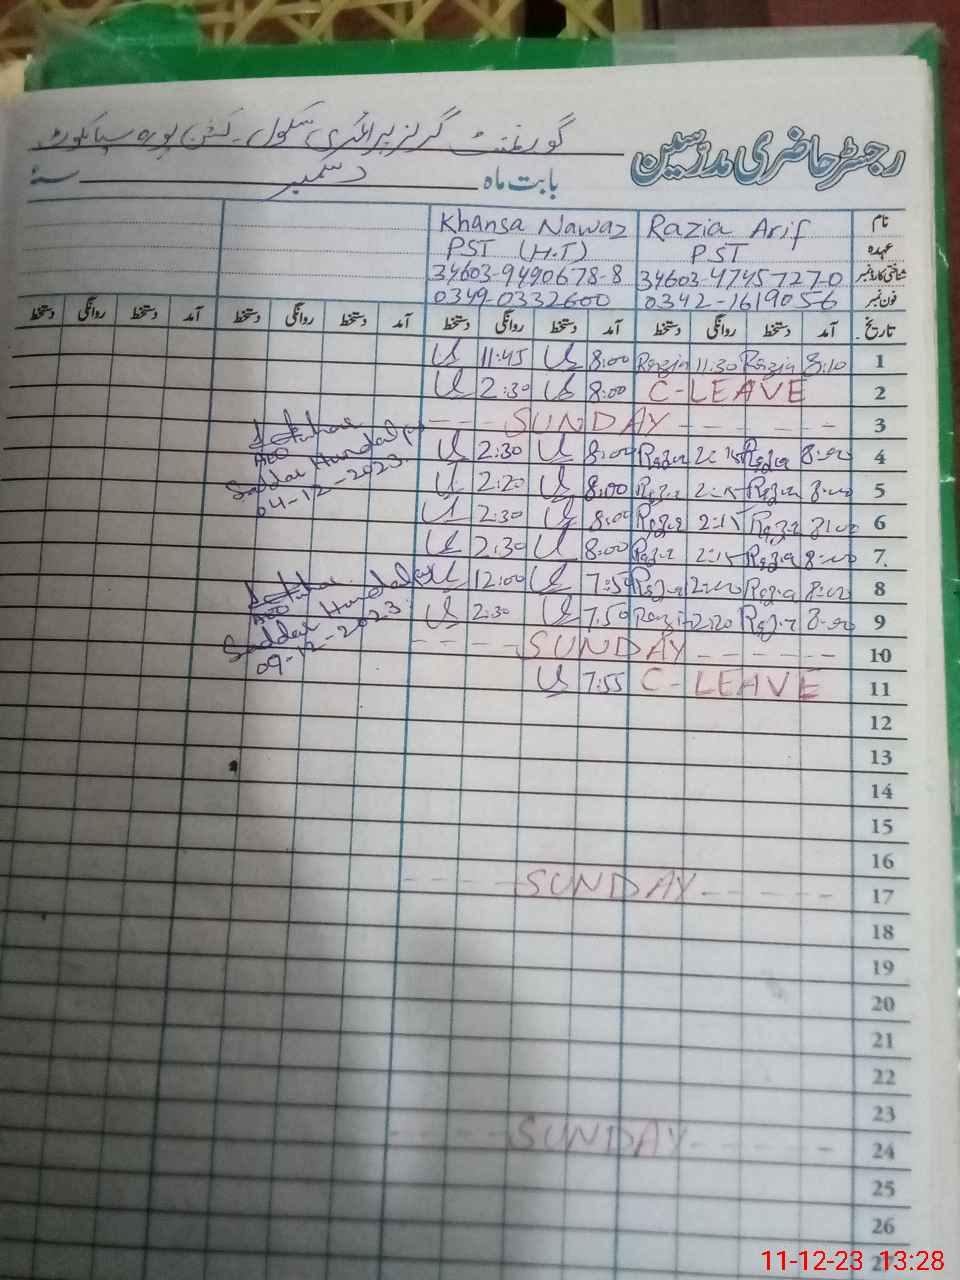 رجسٹر حاضری مدرسین گورنمنٹ گرلز پرائمری سکول۔ کشن پورہ سیالکوٹ
بابت ماہ دسمبر سنہ
نام Razia Arif Khansa Nawaz
عہدہ PST PST (H.T)
شناختی کارڈ نمبر 34603-4745727-0 34603-9490678-8
فون نمبر 0342-1619056 0349-0332600
تاریخ آمد دستخط روانگی دستخط آمد دستخط روانگی دستخط آمد دستخط روانگی دستخط آمد دستخط روانگی دستخط
1 8:10 Razia 11:30 Razia 8:00 11:45
2 C-LEAVE 8:00 2:30
3 SUNDAY
4 8:00 Razia 2:15 Razia 8:00 2:30
5 8:00 Razia 2:15 Razia 8:00 2:20
6 8:00 Razia 2:15 Razia 8:00 2:30
7 8:00 Razia 2:15 Razia 8:00 2:30
8 8:00 Razia 2:00 Razia 7:50 12:00
9 8:00 Razia 2:20 Razia 7:50 2:30
10 SUNDAY
11 C-LEAVE 7:55
12
13
14
15
16
17 SUNDAY
18
19
20
21
22
23
24 SUNDAY
25
26
27
Saddar Hundal
04-12-2023
Saddar Hundal
09-12-2023
11-12-23 13:28